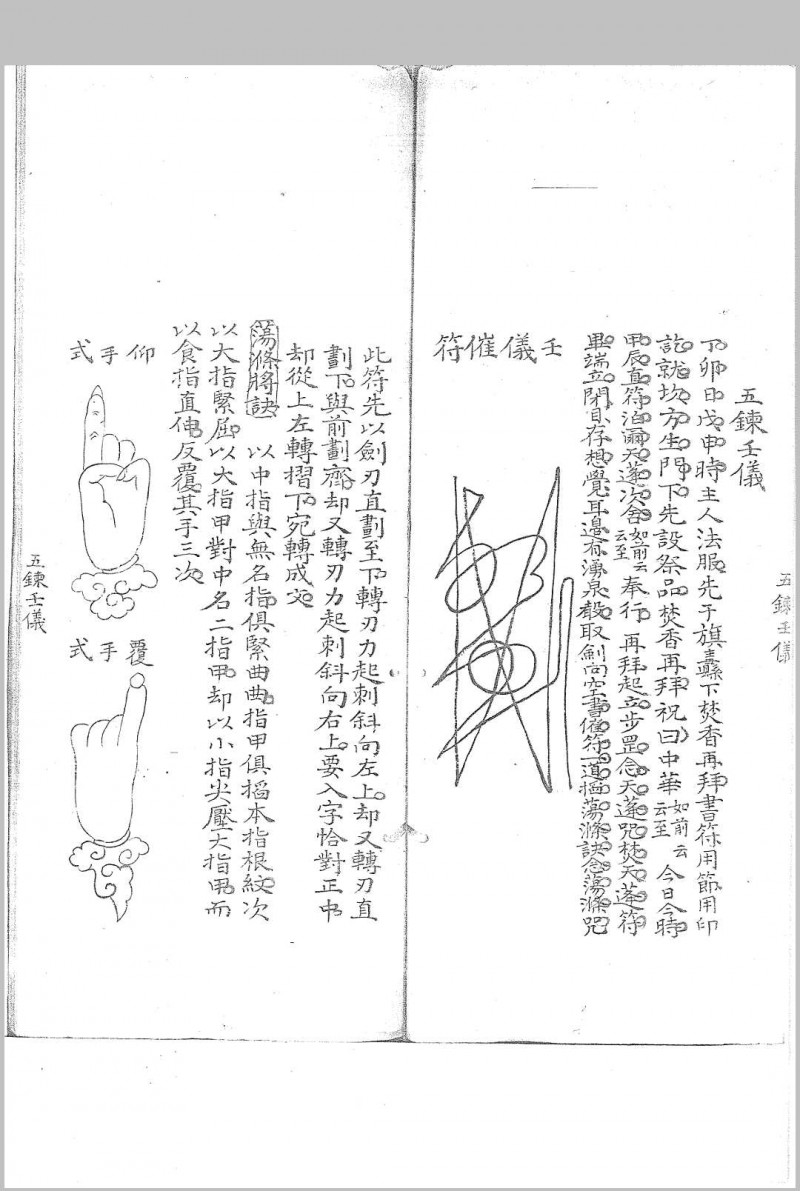 五鍊壬儀
丁卯日戊申時主人法服先于旗纛下焚香再拜書符用節用印
訖就坎方生門下先設祭品焚香再拜祝曰中華如前云云至今日今時
甲辰直符泊爾天蓬次舍如前云云至奉行再拜起立步罡念天蓬咒焚天蓬符
畢端立閉息存想覺耳邊有湧泉聲取劍向空書催符一道掐蕩滌訣念蕩滌咒
壬儀催符
五鍊壬儀
此符先以劍刃直劃至下轉刃力起刺斜向左上却又轉刃直
劃下與前劃齊却又轉刃力起刺斜向右上要入字恰對正中
却從上左轉摺下宛轉成文
蕩滌將訣 以中指與無名指俱緊曲曲指甲俱掐本指根紋次
以大指緊屈以大指甲對中名二指甲却以小指尖壓大指甲而
以食指直伸反覆其手三次
仰手式
覆手式
五鍊壬儀